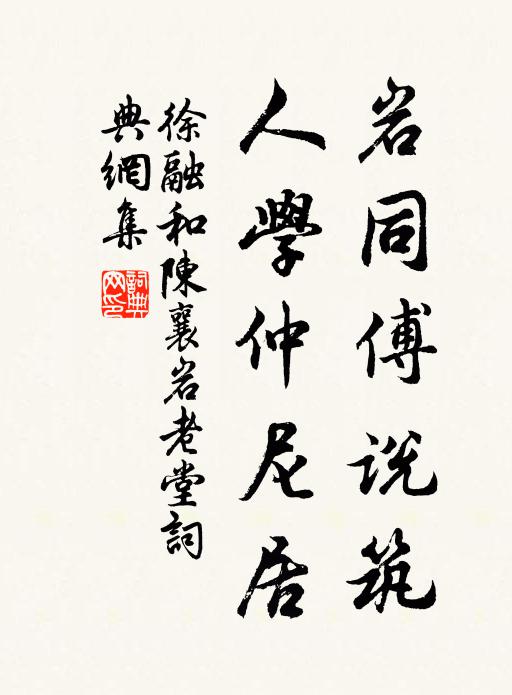 岩同傅説筑
人學仲尼居
徐融和陳襄岩老堂詞
典網集
詞典网印